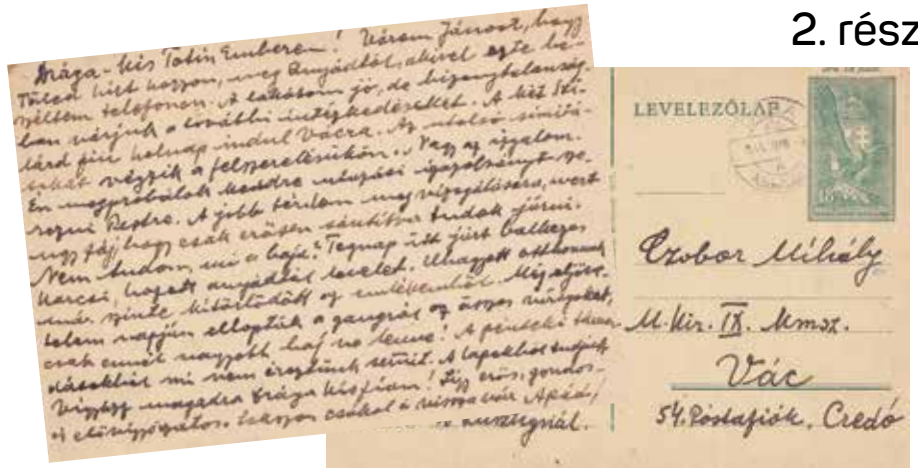 2. rész
Drága - kis Totin Emberem! Várom Jánost, hogy
Tőled hírt hozzon, meg Anyádtól, akivel este be-
széltem telefonon. A lakásom jó, de bizonytalanság-
ban várjuk a további intézkedéseket. A két Szi-
lárd fiú holnap indul Vácra. Az utolsó simítá-
sokat végzik a felszerelésükön. Nagy az izgalom.
Én megpróbálok keddre utazási igazolványt sze-
rezni Pestre. A jobb térdem megvizsgálására, mert
úgy fáj, hogy csak erősen sántítva tudok járni.
Nem tudom mi a baj? Tegnap itt járt balkezes
Karcsi, hozott anyádtól levelet. Elhagyott otthonunk
már szinte kitörlődött az emlékemből. Míg eljöve-
telem napján ellopták a gangról az összes virágokat,
csak ennél nagyobb baj ne lenne! A pénteki táma-
dásokból mi nem éreztünk semmit. A lapokból tudjuk
Vigyázz magadra drága kisfiam! Légy erős, gondos-
és elővigyázatos. Sokszor csókol és vissza vár Apád
LEVELEZŐLAP
Czobor Mihály
M. kir. IX. kmsz.
Vác
54. Postafiók. Credó